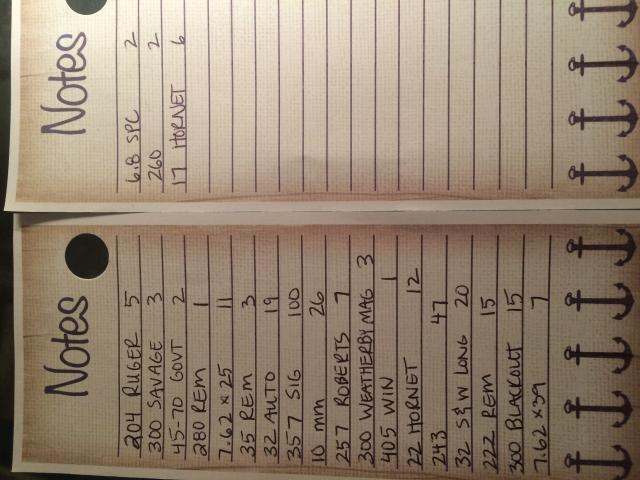 Notes
204 RUGER 5
300 SAVAGE 3
45-70 GOVT 2
280 REM 1
7.62 x 25 11
35 REM 3
32 AUTO 19
357 SIG 100
10 mm 26
257 ROBERTS 7
300 WEATHERBY MAG 3
405 WIN 1
22 HORNET 12
243 47
32 S&W LONG 20
222 REM 15
300 BLACKOUT 15
7.62 x 39 7
Notes
6.8 SPC 2
260 2
17 HORNET 6